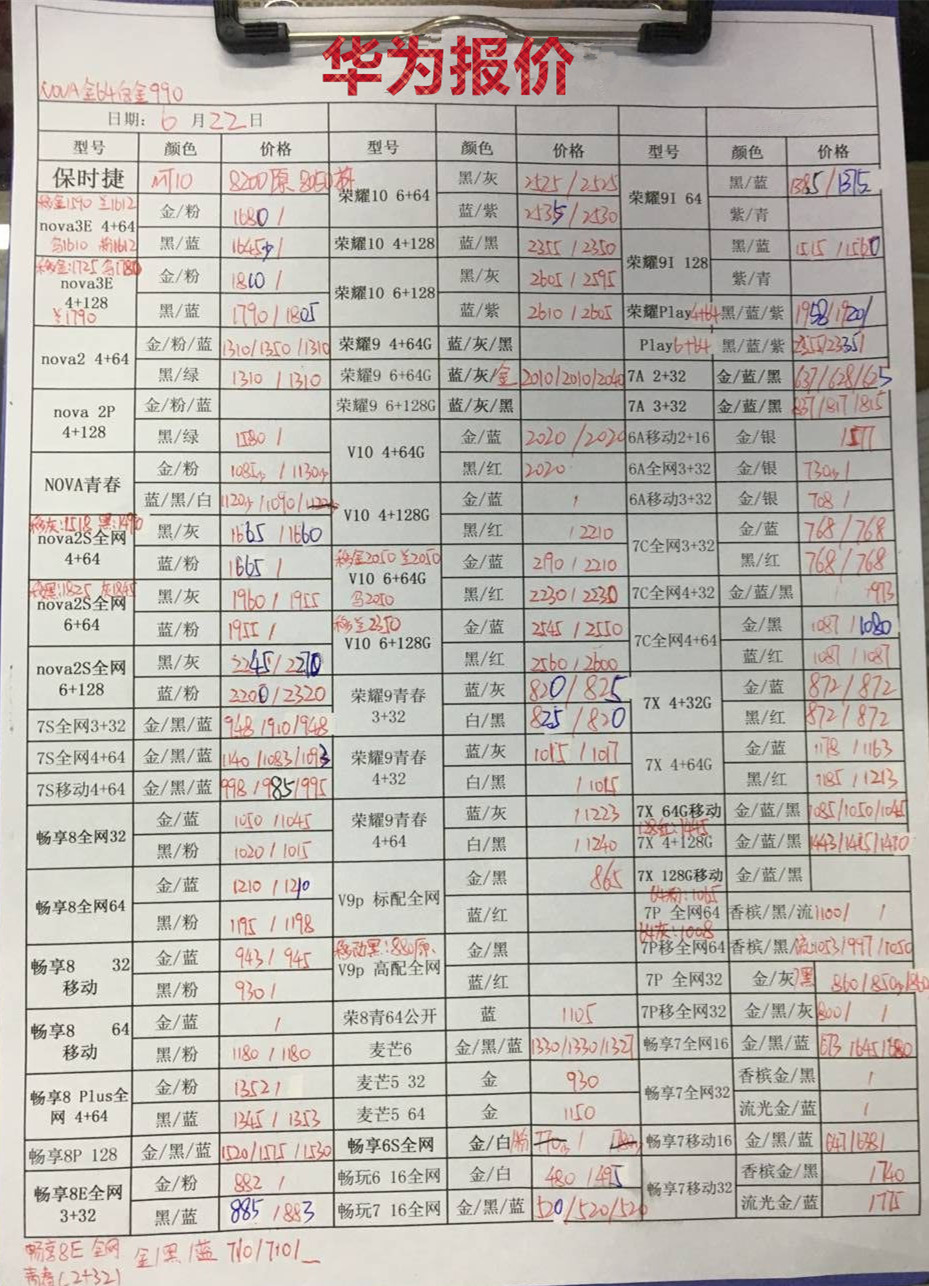 华为报价
NOVA金64白金990
日期: 6 月22日
型号 颜色 价格 型号 颜色 价格 型号 颜色 价格
保时捷 MT10 8200原 8050 荣耀10 6+64 黑/灰 2525/2525 荣耀9I 64 黑/蓝 1385/1375
移金1590 兰1612 nova3E 4+64 金/粉 1680/ 蓝/紫 2535/2530 紫/青
1610 1612 黑/蓝 1645/ 荣耀10 4+128 蓝/黑 2355/2350 荣耀9I 128 黑/蓝 1515/1560
移金:1725 1780 nova3E 4+128 金/粉 1810/ 荣耀10 6+128 黑/灰 2605/2595 紫/青
1790 黑/蓝 1790/1805 蓝/紫 2610/2605 荣耀Play4+64 黑/蓝/紫 1958/1920/
nova2 4+64 金/粉/蓝 1310/1350/1310 荣耀9 4+64G 蓝/灰/黑 Play6+64 黑/蓝/紫 2355/2335/
黑/绿 1310/1310 荣耀9 6+64G 蓝/灰/金 2010/2010/2040 7A 2+32 金/蓝/黑 637/628/625
nova 2P 4+128 金/粉/蓝 荣耀9 6+128G 蓝/灰/黑 7A 3+32 金/蓝/黑 837/817/815
黑/绿 1580/ V10 4+64G 金/蓝 2020/2020 6A移动2+16 金/银 /577
NOVA青春 金/粉 1085/1130 黑/红 2020 6A全网3+32 金/银 730/
蓝/黑/白 1120/1090/ V10 4+128G 金/蓝 / 6A移动3+32 金/银 708/
移灰:1518 黑:1490 nova2S全网 4+64 黑/灰 1665/1660 黑/红 /2210 7C全网3+32 金/蓝 768/768
蓝/粉 1665/ 移金2050 兰2050 V10 6+64G 金/蓝 2190/2210 黑/红 768/768
移黑:1825 灰1845 nova2S全网 6+64 黑/灰 1960/1955 2050 黑/红 2230/2230 7C全网4+32 金/蓝/黑 /973
蓝/粉 1955/ 移兰2350 V10 6+128G 金/蓝 2545/2550 7C全网4+64 金/黑 1087/1080
nova2S全网 6+128 黑/灰 2245/2270 黑/红 2560/2600 蓝/红 1087/1087
蓝/粉 2200/2320 荣耀9青春 3+32 蓝/灰 820/825 7X 4+32G 金/蓝 872/872
7S全网3+32 金/黑/蓝 948/910/948 白/黑 825/820 黑/红 872/872
7S全网4+64 金/黑/蓝 1140/1083/1093 荣耀9青春 4+32 蓝/灰 1015/1017 7X 4+64G 金/蓝 1178/1163
7S移动4+64 金/黑/蓝 998/985/995 白/黑 /1015 黑/红 1185/1213
畅享8全网32 金/蓝 1050/1045 荣耀9青春 4+64 蓝/灰 /1223 7X 64G移动 金/蓝/黑 1085/1050/1045
黑/粉 1020/1015 白/黑 /1240 128红:1445 7X 4+128G 金/蓝/黑 1443/1415/1410
畅享8全网64 金/蓝 1210/1210 V9p 标配全网 金/黑 865 7X 128G移动 金/蓝/黑
黑/粉 1195/1198 蓝/红 64粉:1065 7P 全网64 香槟/黑/流 1100/ /
畅享8 32 移动 金/蓝 943/945 移动黑:880原 V9p 高配全网 金/黑 64灰:1008 7P移全网64 香槟/黑/流 1053/997/1050
黑/粉 930/ 蓝/红 7P 全网32 金/灰/黑 860/850/860
畅享8 64 移动 金/蓝 / 荣8青64公开 蓝 1105 7P移全网32 金/黑/灰 800/ /
黑/粉 1180/1180 麦芒6 金/黑/蓝 1330/1330/1327 畅享7全网16 金/黑/蓝 673/645/680
畅享8 Plus全网 4+64 金/粉 1352/ 麦芒5 32 金 930 畅享7全网32 香槟金/黑 /
黑/蓝 1345/1353 麦芒5 64 金 1150 流光金/蓝 /
畅享8P 128 金/黑/蓝 1520/1515/1530 畅享6S全网 金/白/粉 畅享7移动16 金/黑/蓝 647/638/
畅享8E全网 3+32 金/粉 882/ 畅玩6 16全网 金/白 480/495 畅享7移动32 香槟金/黑 /740
黑/蓝 885/883 畅玩7 16全网 金/黑/蓝 520/520/520 流光金/蓝 /775
畅享8E 全网 金/黑/蓝 710/710/_
青春(2+32)